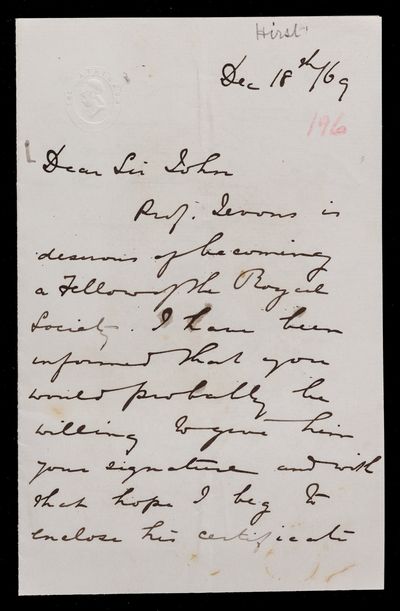 Hirst
Dec 18th/69
196
Dear Sir John
Prof. Jevons is
desirous of becoming
a Fellow of the Royal
Society. I have been
informed that you
would probably be
willing to give him
your signature and with
that hope I beg to
enclose his certificate